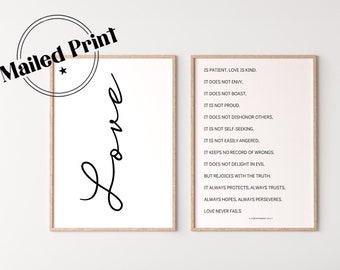 Mailed Print
Love
IS PATIENT, LOVE IS KIND.
IT DOES NOT ENVY,
IT DOES NOT BOAST,
IT IS NOT PROUD.
IT DOES NOT DISHONOR OTHERS,
IT IS NOT SELF-SEEKING,
IT IS NOT EASILY ANGERED,
IT KEEPS NO RECORD OF WRONGS.
IT DOES NOT DELIGHT IN EVIL
BUT REJOICES WITH THE TRUTH.
IT ALWAYS PROTECTS, ALWAYS TRUSTS,
ALWAYS HOPES, ALWAYS PERSEVERES.
LOVE NEVER FAILS